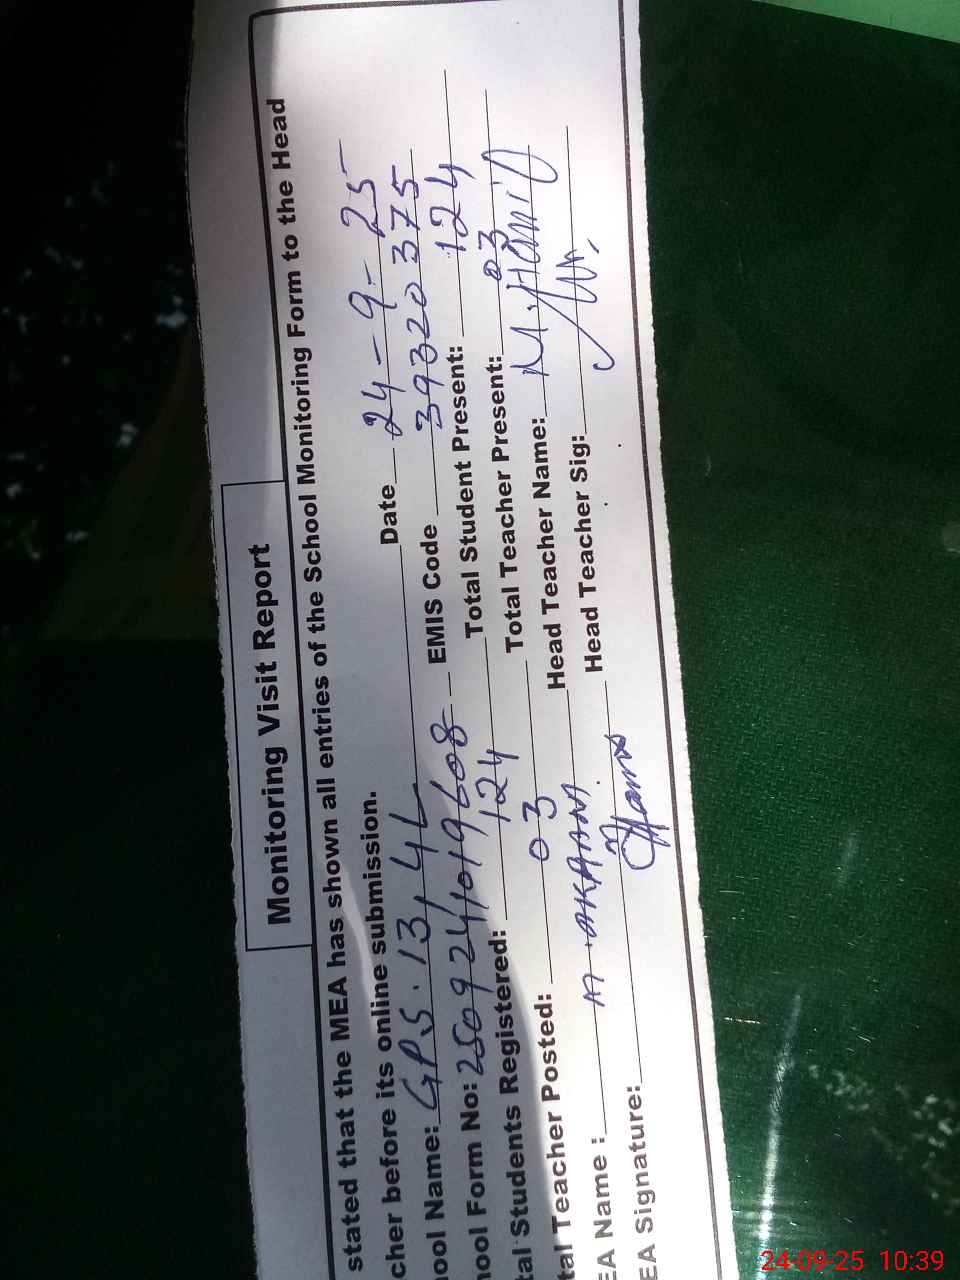 Monitoring Visit Report
stated that the MEA has shown all entries of the School Monitoring Form to the Head
cher before its online submission.
ool Name: GPS. 13/4L Date 24-9-25
nool Form No: 250924/1019608 EMIS Code 39320375
tal Students Registered: 124 Total Student Present: 124
tal Teacher Posted: 03 Total Teacher Present: 03
EA Name : M. AKRAM Head Teacher Name: M. Hanif
EA Signature: Head Teacher Sig:
24-09-25 10:39